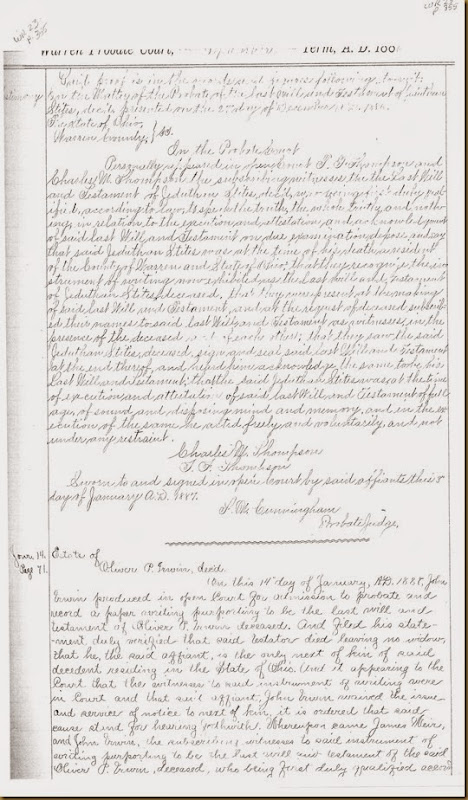 Will 23
p. 355
Warren Probate Court, Term, A.D. 188
Testimony
Said proof is in the words and figures following, to wit:
In the Matter of the Probate of the Last Will and Testament of Jeduthan
Stites, dec'd, presented on the 2nd day of December A.D. 1886.
The State of Ohio,
Warren County, } SS.
In the Probate Court
Personally appeared in open Court T. F. Thompson and
Charles W. Thompson the subscribing witnesses to the Last Will
and Testament of Jeduthan Stites, dec'd, who being first duly qual-
ified, according to law, to speak the truth, the whole truth, and noth-
ing, in relation to the execution and attestation, and acknowledgment
of said Last Will and Testament on due examination, depose and say
that said Jeduthan Stites was at the time of his death a resident
of the County of Warren and State of Ohio, that they recognize the in-
strument of writing now exhibited as the Last Will and Testament
of Jeduthan Stites, deceased, that they were present at the making
of said Last Will and Testament, and at the request of deceased subscrib-
ed their names to said Last Will and Testament as witnesses, in the
presence of the deceased and of each other; that they saw the said
Jeduthan Stites, deceased, sign and seal said Last Will and Testament
at the end thereof, and heard him acknowledge the same to be his
Last Will and Testament; that the said Jeduthan Stites was at the time
of execution and attestation of said Last Will and Testament of full
age, of sound and disposing mind and memory, and in the ex-
ecution of the same he acted freely and voluntarily, and not
under any restraint.
Charles W. Thompson
T. F. Thompson
Sworn to and signed in open Court by said affiants this 5
day of January A.D. 1887.
J. W. Cunningham
Probate Judge.
Jour. 14.
Page 71.
Estate of
Oliver P. Erwin, decd.
On this 14th day of January, A.D. 1888, John
Erwin produced in open Court for admission to probate and
record a paper writing purporting to be the last will and
testament of Oliver P. Erwin deceased. And filed his state-
ment duly verified that said testator died leaving no widow,
that he, the said affiant, is the only next of kin of said
decedent residing in the State of Ohio. And it appearing to the
Court that the witnesses to said instrument of writing were
in Court and that said affiant, John Erwin waived the issue
and service of notice to next of kin, it is ordered that said
cause stand for hearing forthwith. Whereupon came James Weir,
and John Erwin, the subscribing witnesses to said instrument of
writing purporting to be the last will and testament of the said
Oliver P. Erwin, deceased, who being first duly qualified accord